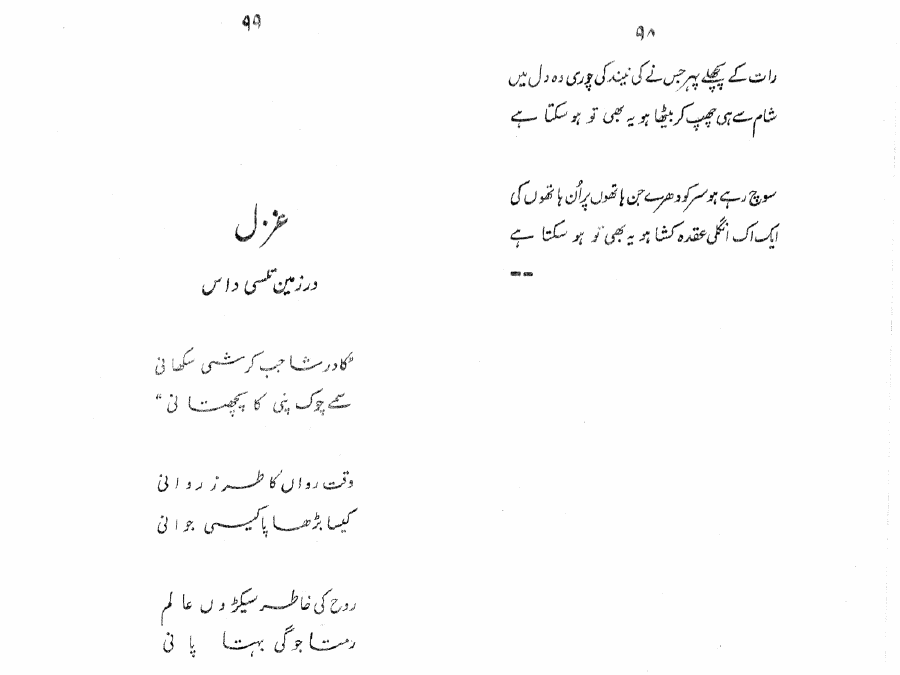 ۹۸
رات کے پچھلے پہر جس نے کی نیند کی چوری وہ دل میں
شام سے ہی چھپ کر بیٹھا ہو یہ بھی تو ہو سکتا ہے
سوچ رہے ہو سر کو دھرے جن ہاتھوں پر اُن ہاتھوں کی
ایک اک انگلی عقدہ کشا ہو یہ بھی تو ہو سکتا ہے
۹۹
غزل
در زمین تلسی داس
"کا درشا جب کرشی سکھانی
سمے چوک پنی کا پچھتانی"
وقت رواں کا طرز روانی
کیسا بڑھاپا کیسی جوانی
روح کی خاطر سیکڑوں عالم
رمتا جوگی بہتا پانی